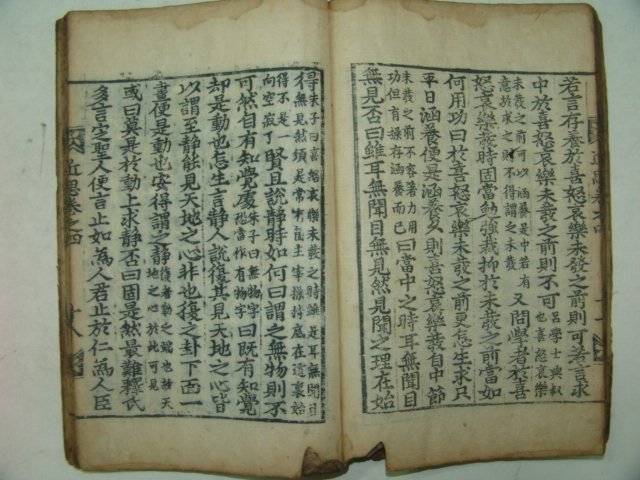 若言存養於喜怒哀樂未發之前則可若言求
中於喜怒哀樂未發之前則不可呂學士與叔
也喜怒哀樂
未發之前可以涵養是中若有
意於求之則不得謂之未發又問學者於喜
怒哀樂發時固當勉強裁抑於未發之前當如
何用功曰於喜怒哀樂未發之前更怎生求只
平日涵養便是涵養久則喜怒哀樂發自中節
未發之前不容著力用
功但有操存涵養而已曰當中之時耳無聞目
無見否曰雖耳無聞目無見然見聞之理在始
近思卷之四
得朱子曰喜怒哀樂未發之時雖是耳無聞目
無見然須是常有箇主宰操持底在這裏始
得不是一
向空寂了賢且說靜時如何曰謂之無物則不
可然自有知覺處朱子曰無物字
恐當作有物字曰旣有知覺
却是動也怎生言靜人說復其見天地之心皆
以謂至靜能見天地之心非也復之卦下面一
畫便是動也安得謂之靜復者動之端也故天
地之心於此可見
或曰莫是於動上求靜否曰固是然最難釋氏
多言定聖人便言止如爲人君止於仁爲人臣
近思卷之四